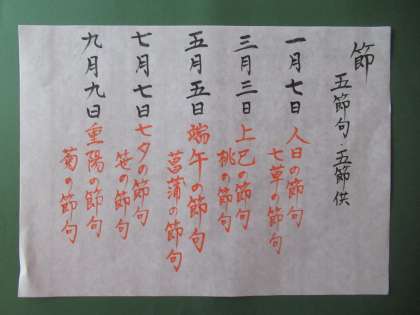 節
五節句・五節供
一月七日 人日の節句
七草の節句
三月三日 上巳の節句
桃の節句
五月五日 端午の節句
菖蒲の節句
七月七日 七夕の節句
笹の節句
九月九日 重陽の節句
菊の節句